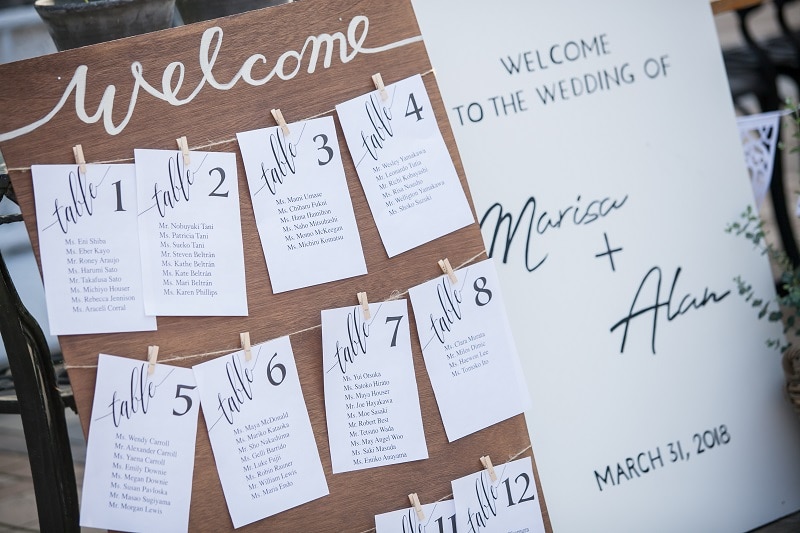 welcome
table 1
Ms. Eni Shiba
Ms. Eber Kayo
Mr. Roney Araujo
Ms. Harumi Sato
Mr. Takafusa Sato
Ms. Michiyo Houser
Ms. Rebecca Jennison
Ms. Araceli Corral
table 2
Mr. Nobuyuki Tani
Ms. Patricia Tani
Ms. Sueko Tani
Mr. Steven Beltrán
Ms. Kathe Beltrán
Ms. Kate Beltrán
Ms. Mari Beltrán
Ms. Karen Phillips
table 3
Ms. Mami Umase
Ms. Chiharu Fukui
Ms. Hana Hamilton
Ms. Naho Mitsuhashi
Ms. Momo McKeegan
Ms. Michiru Komatsu
table 4
Mr. Wesley Yamakawa
Mr. Leonardo
Mr. Richi Kobayashi
Ms. Risa
Mr. Wellignon Yamakawa
Ms. Shoko Suzuki
table 5
Ms. Wendy Carroll
Mr. Alexander Carroll
Ms. Yaena Carroll
Ms. Emily Downie
Ms. Megan Downie
Ms. Susan Pavloska
Mr. Masao Sugiyama
Mr. Morgan Lewis
table 6
Ms. Maya McDonald
Ms. Mariko Katsuoka
Mr. Sho Nakashima
Ms. Gelli Barrido
Mr. Luke Fujii
Ms. Robin Ritsner
Mr. William Lewis
Ms. Maria Endo
table 7
Ms. Yui Otsuka
Ms. Satoko Hirano
Ms. Maya Houser
Mr. Joe Hayakawa
Ms. Moe Sasaki
Mr. Robert Best
Mr. Tetsuro Wada
Ms. May Angel Woo
Ms. Saki Masuda
Ms. Emiko Aruyama
table 8
Ms. Clara Murata
Mr. Milos
Ms. Haewon Lee
Ms. Tomoko Ito
table 11
table 12
WELCOME
TO THE WEDDING OF
Marisa
+
Alan
MARCH 31, 2018